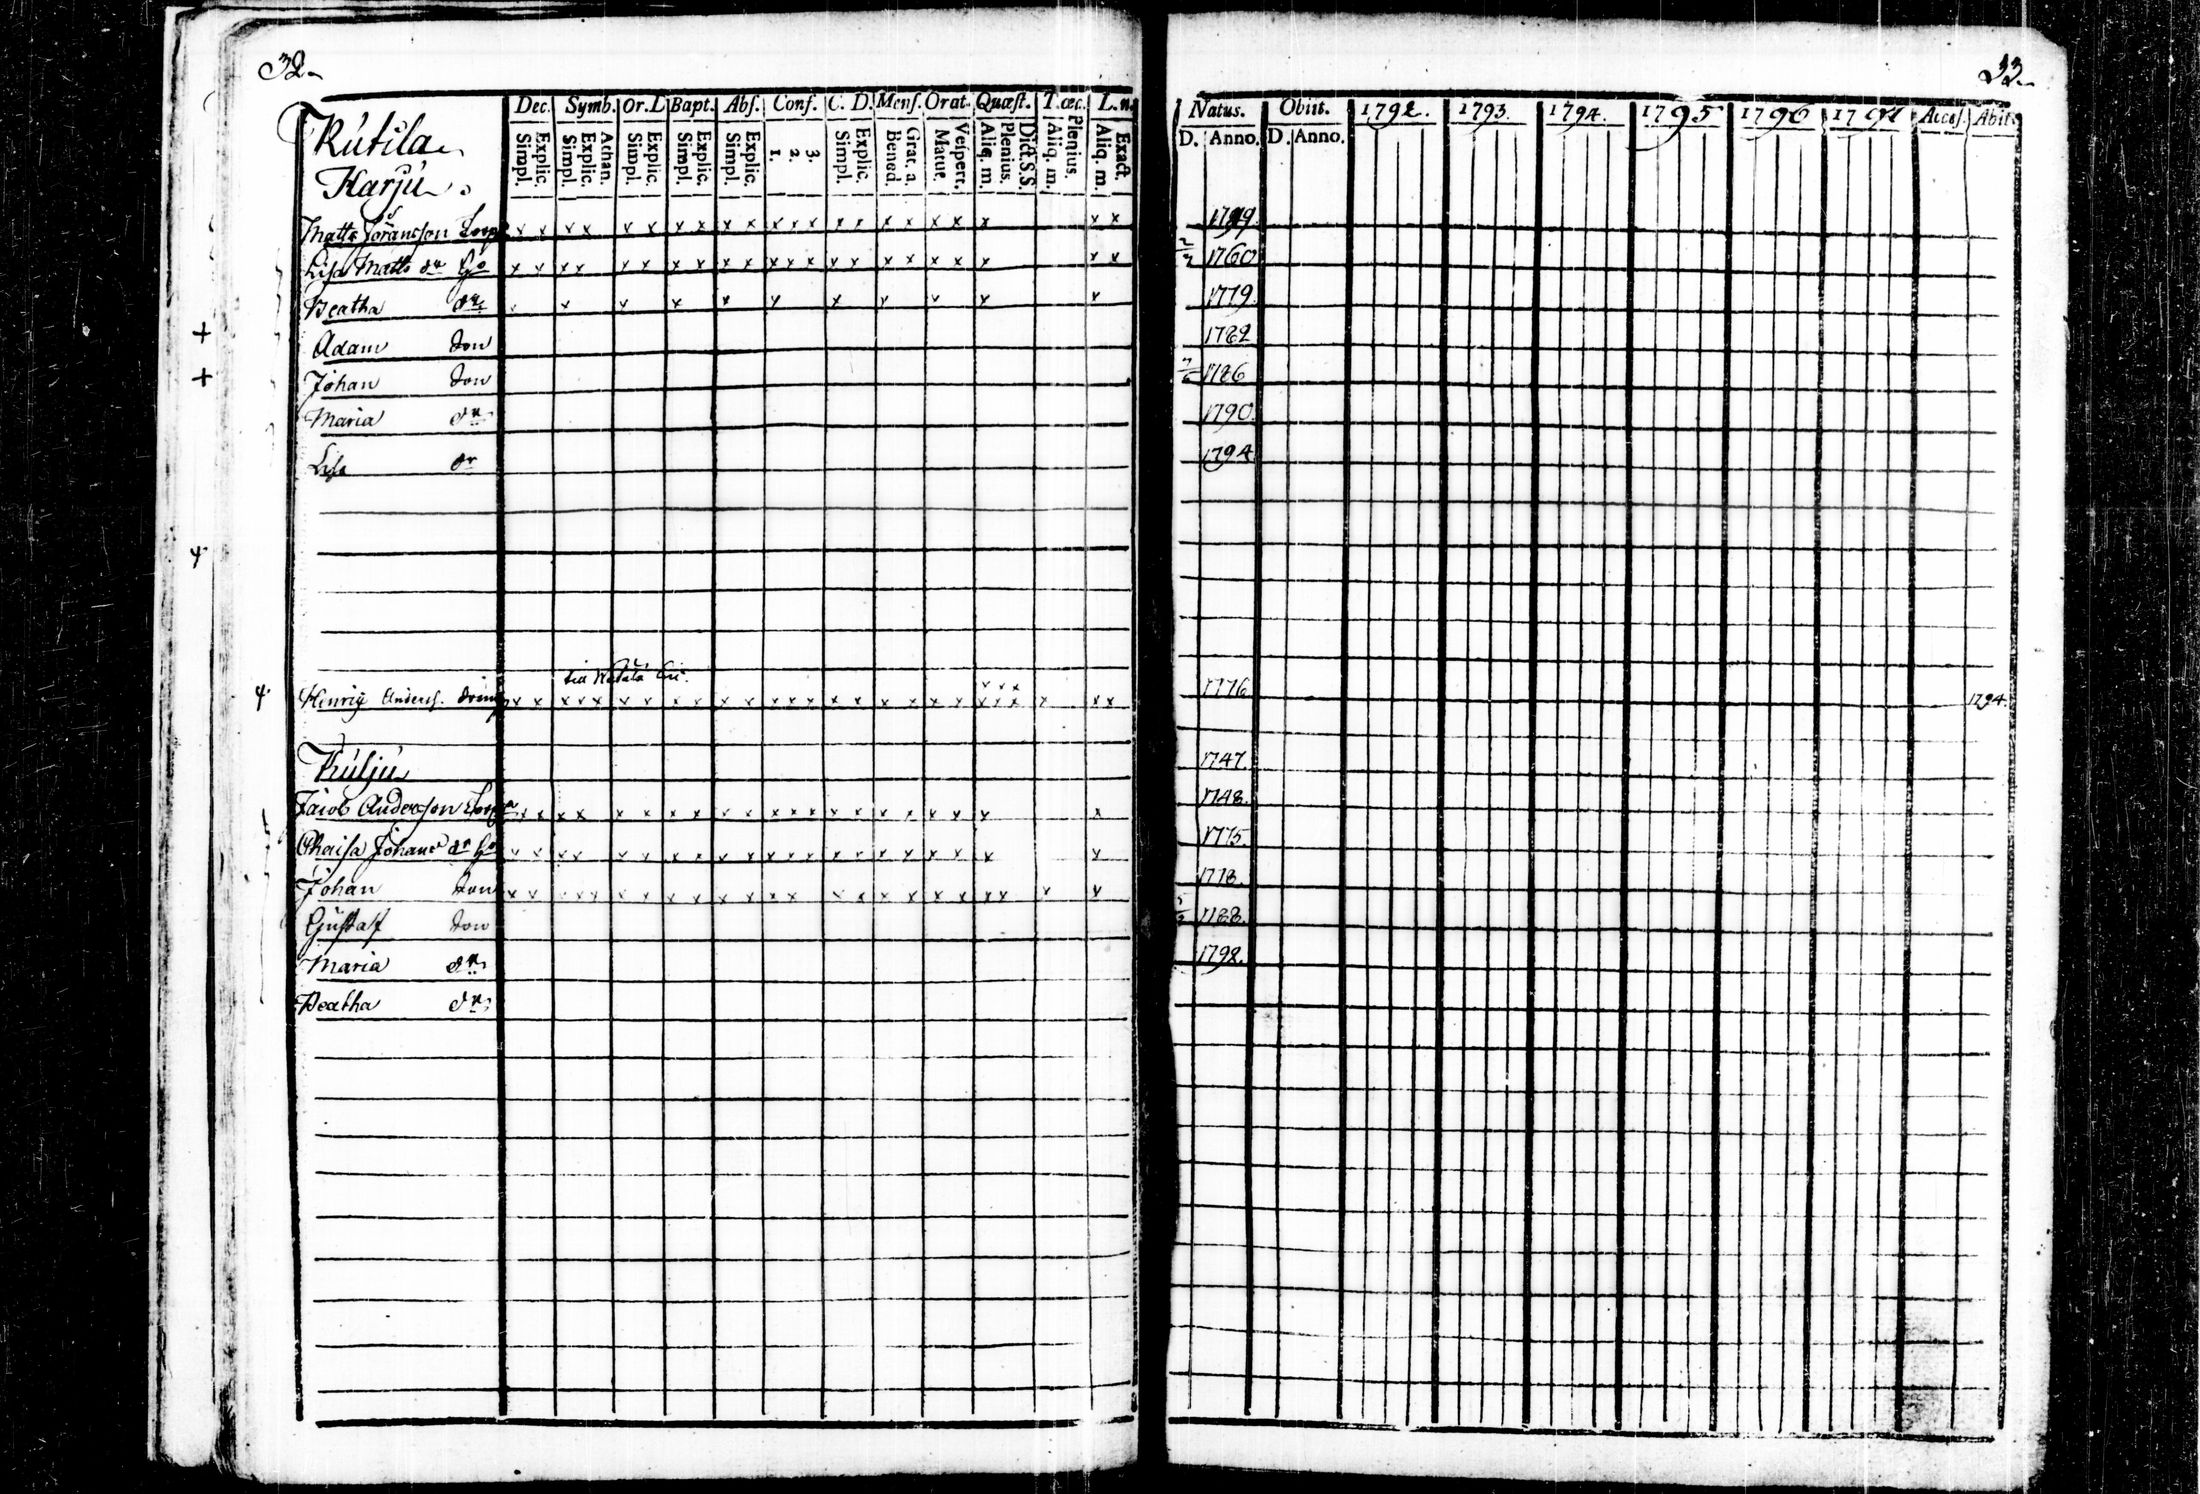 32.
Dec. Symb. Or. D. Bapt. Abs. Conf. C. D. Mens. Orat. Quæst. T. œc. L. n.
Simpl. Explic. Simpl. Explic. Athan. Simpl. Explic. Simpl. Explic. Simpl. Explic. 1. 2. 3. Simpl. Explic. Bened. Grat. a. Matut. Vespert. Aliq. m. Plenius. Dict. S.S. Aliq. m. Plenius. Aliq. m. Exact.
Rutila
Karju
Matts Göransson
x x x x x x x x x x x x x x x x x x x x x x
Lisa Matts dr
x x x x x x x x x x x x x x x x x x x x x x
Beatha dr
x x x x x x x x x x
Adam Son
Johan Son
Maria dr
Lisa dr
till
Henric Anders. dräng
x x x x x x x x x x x x x x x x x x x x x x x x x x x
Kulju
Jacob Andersson
x x x x x x x x x x x x x x x x x x x x x
Chaisa Johans dr
x x x x x x x x x x x x x x x x x x x x x
Johan Son
x x x x x x x x x x x x x x x x x x x x x x x
Gustaf Son
Maria dr
Beatha dr
33.
Natus. Obiit. 1792. 1793. 1794. 1795 1796 1797 Acces. Abit.
D. Anno. D. Anno.
1760
1779
1782
1786
1790.
1794
1776 1794.
1747.
1748.
1775.
1778.
1788.
1792.